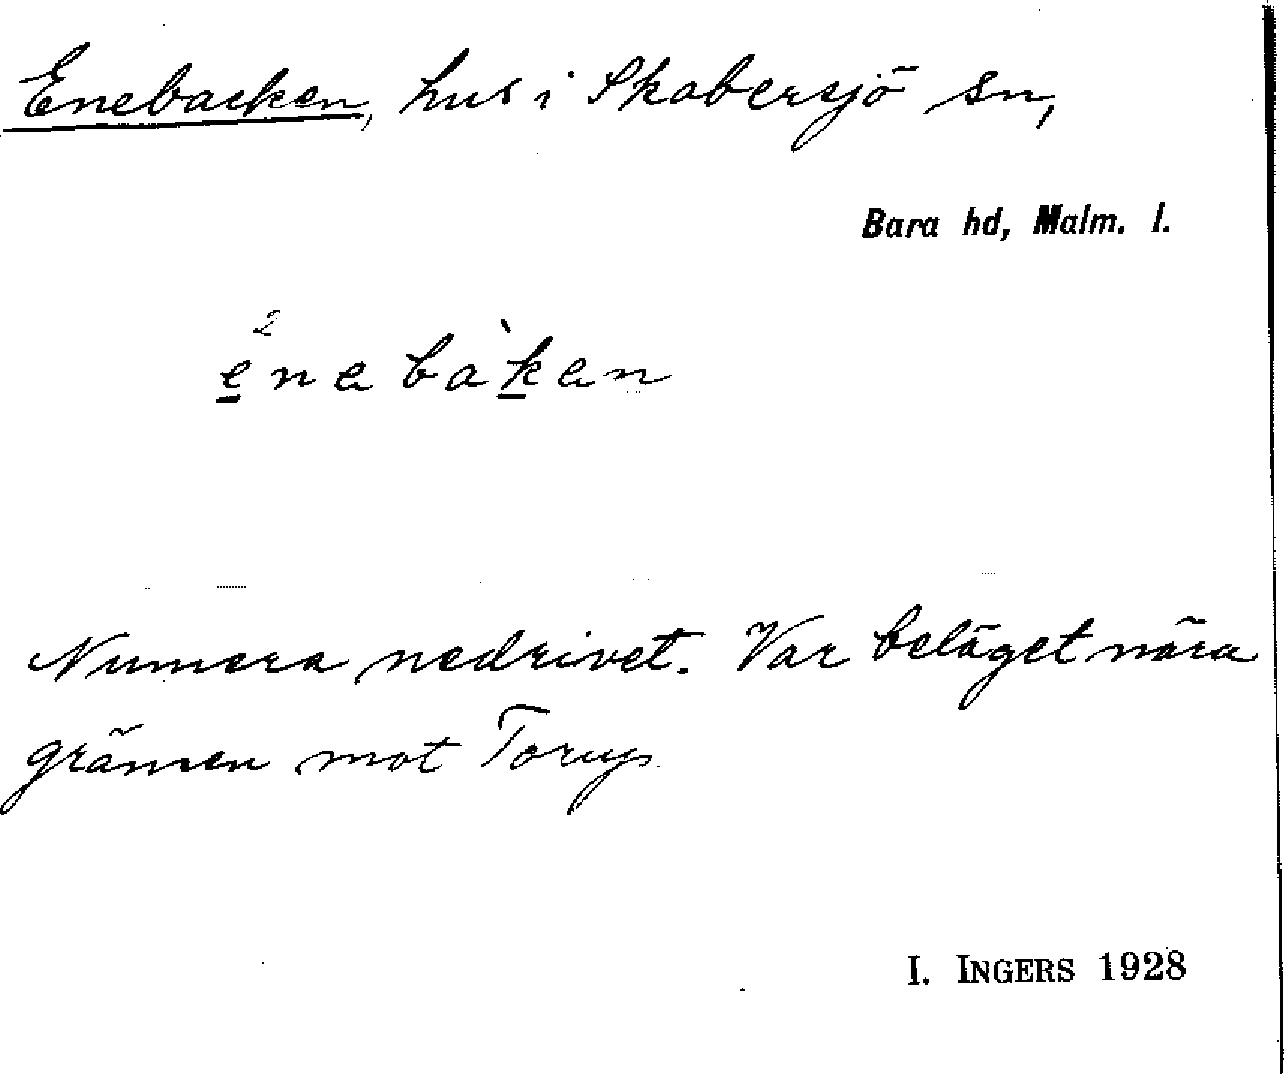 Enebacken, hus i Skabersjö sn,
Bara hd, Malm. l.
2
enebàken
Numera nedrivet. Var beläget nära
gränsen mot Torup.
I. INGERS 1928